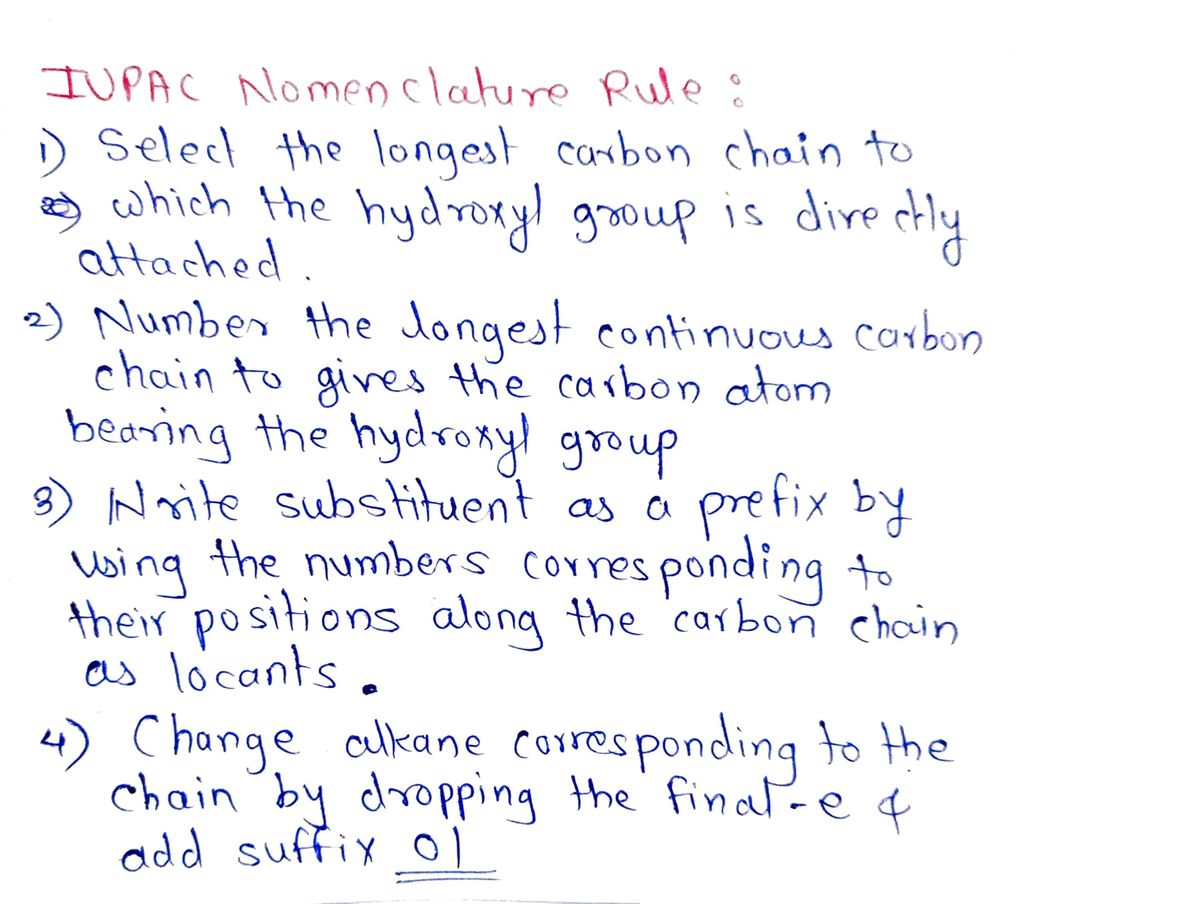 IUPAC Nomenclature Rule :
1) Select the longest carbon chain to
which the hydroxyl group is directly
attached .
2) Number the longest continuous carbon
chain to gives the carbon atom
bearing the hydroxyl group
3) Write substituent as a prefix by
using the numbers corresponding to
their positions along the carbon chain
as locants .
4) Change alkane corresponding to the
chain by dropping the final -e &
add suffix ol